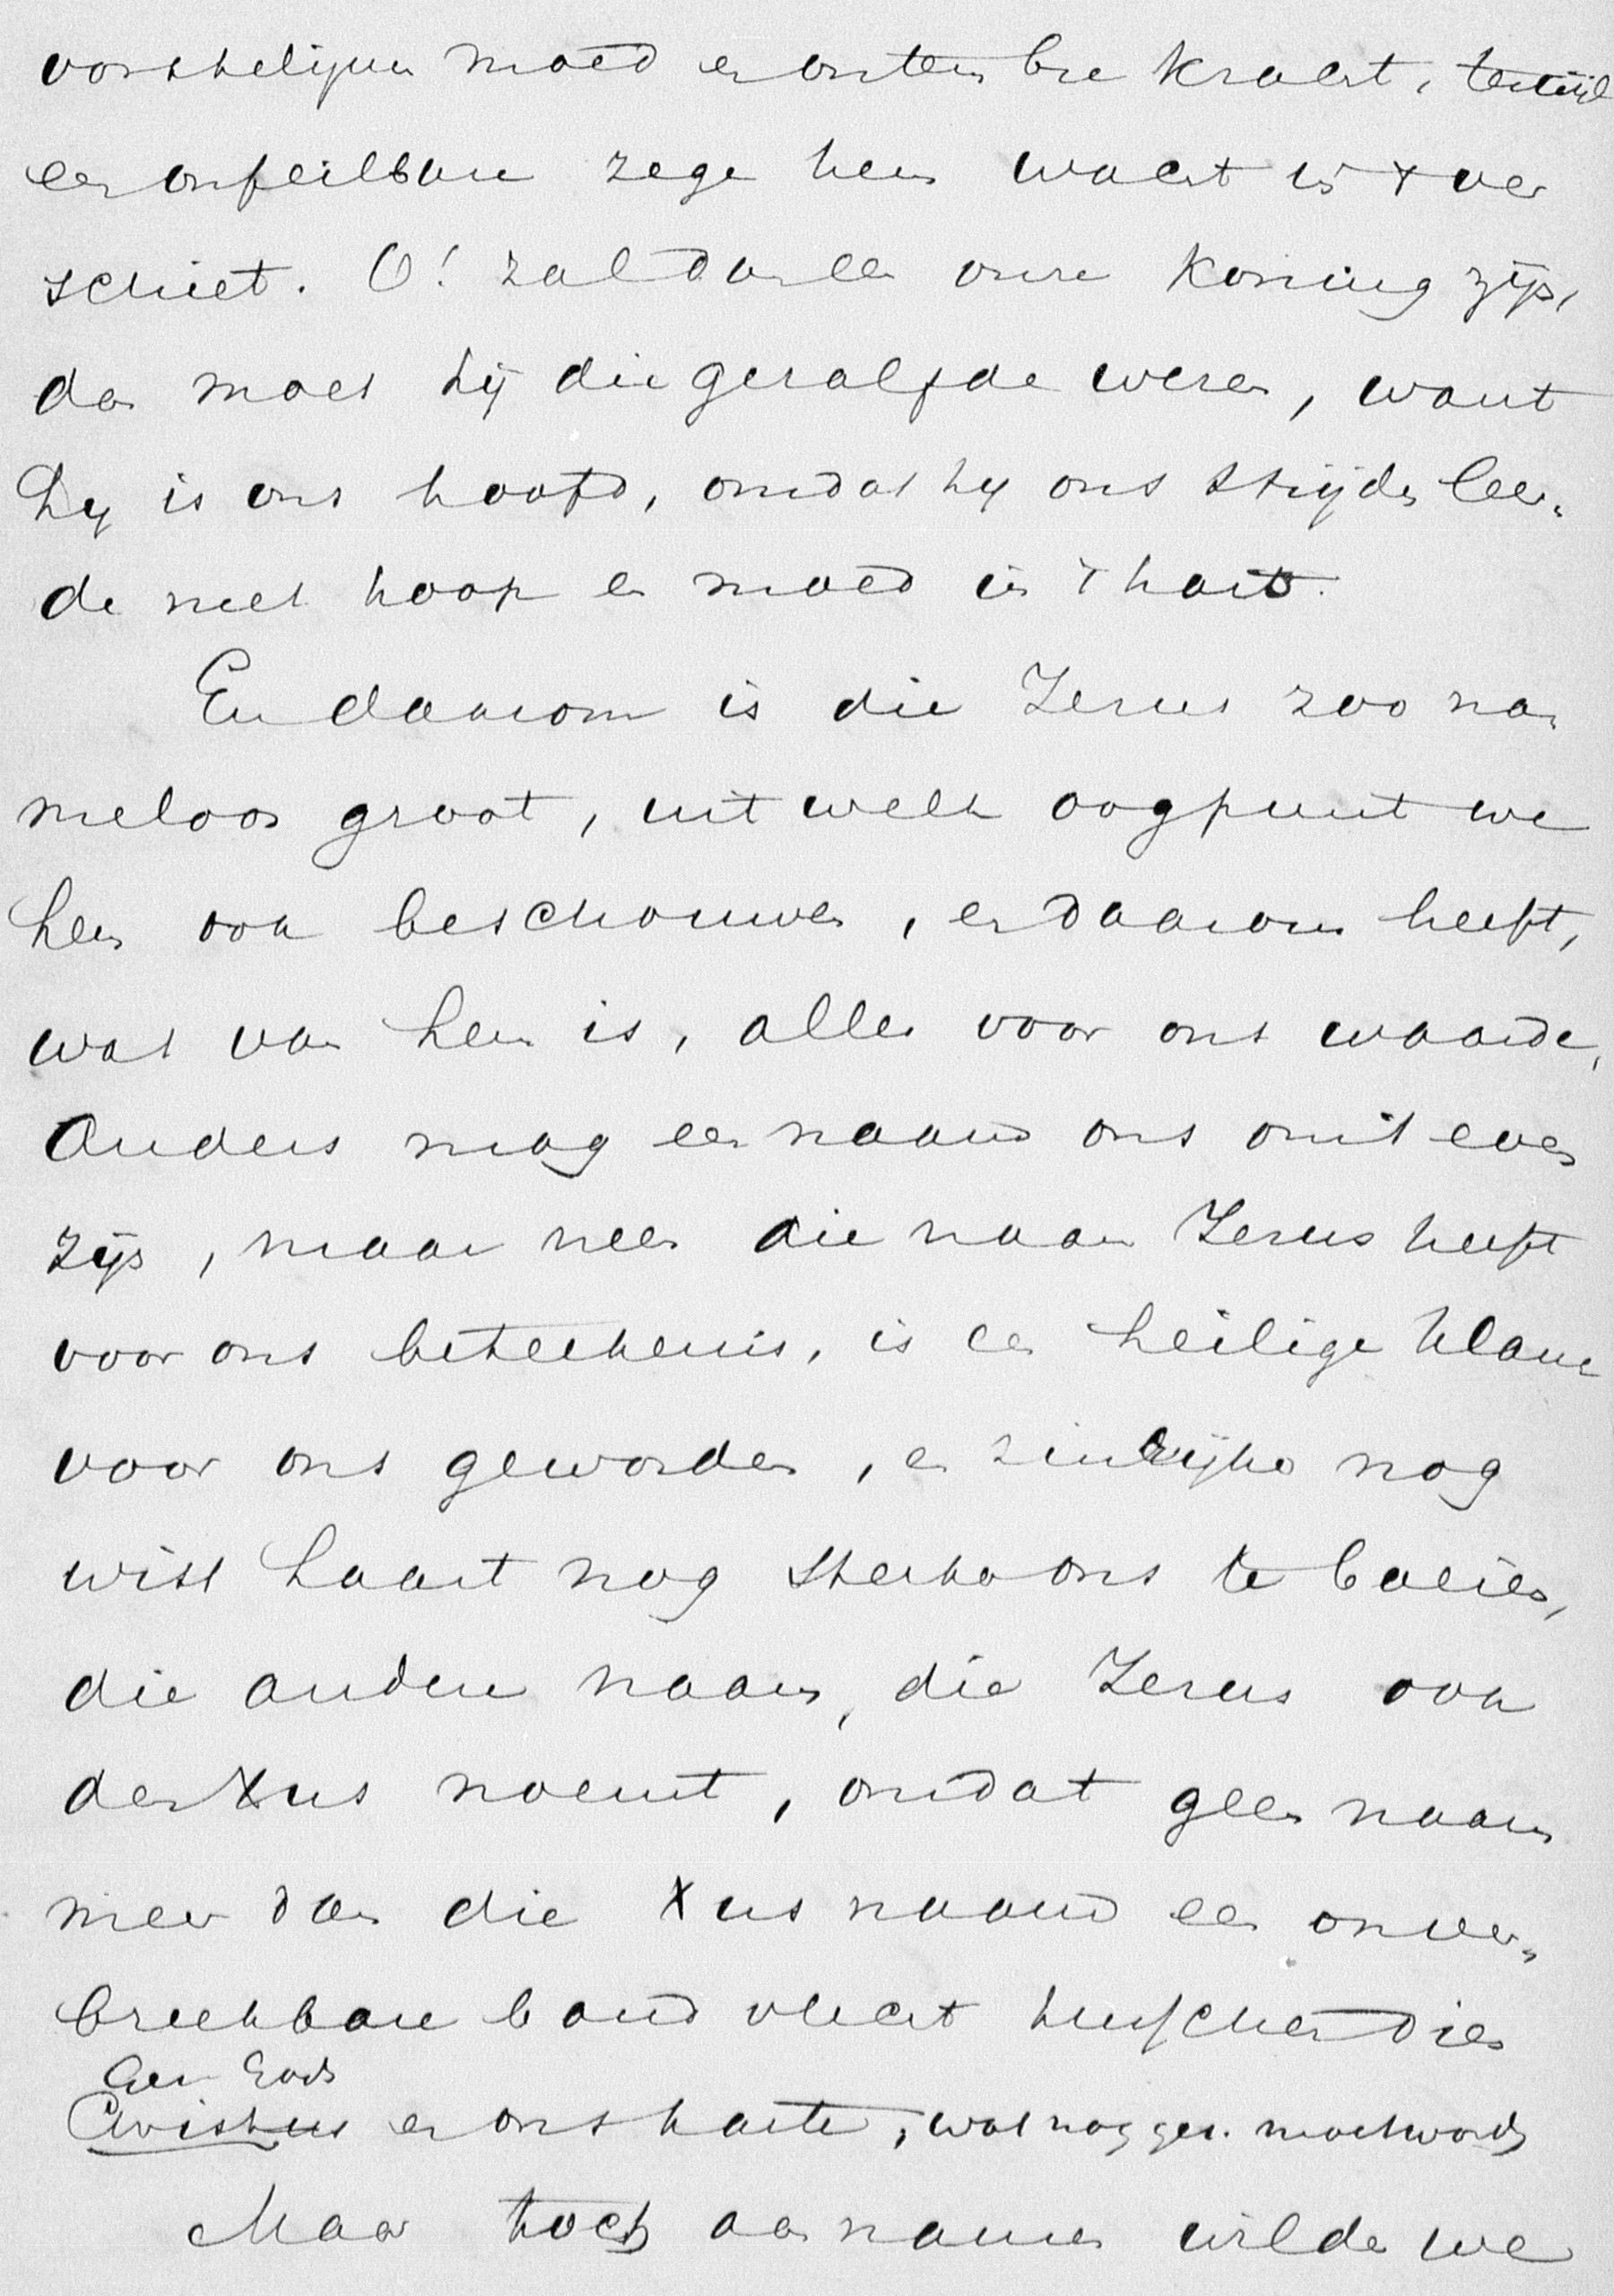 vorstelijken moed en ontembre kracht, terwijl
een onfeilbare zege hem wacht in 't ver
schiet. O! zal dan een onze Koning zijn,
dan moet hij die gezalfde wezen, want
hy is ons hoofd, omdat hy ons strijden leer-
de met hoop en moed in 't hart.
En daarom is die Jezus zoo na-
meloos groot, uit welk oogpunt we
hem ook beschouwen, en daarom heeft,
wat van hem is, alles voor ons waarde,
Anders mag een naam ons om't even
zijn, maar neen die naam Jezus heeft
voor ons beteekenis, is een heilige klank
voor ons geworden, en zinrijker nog
wist haast nog sterker ons te boeien,
die andere naam, die Jezus ook
den Xus noemt, omdat geen naam
meer dan die Xus naam een onver-
breekbare band vlecht tusschen dien
Gez. Gods
Christus en ons harte, wat nog gez. moet worden
Maar toch aan namen wilden we